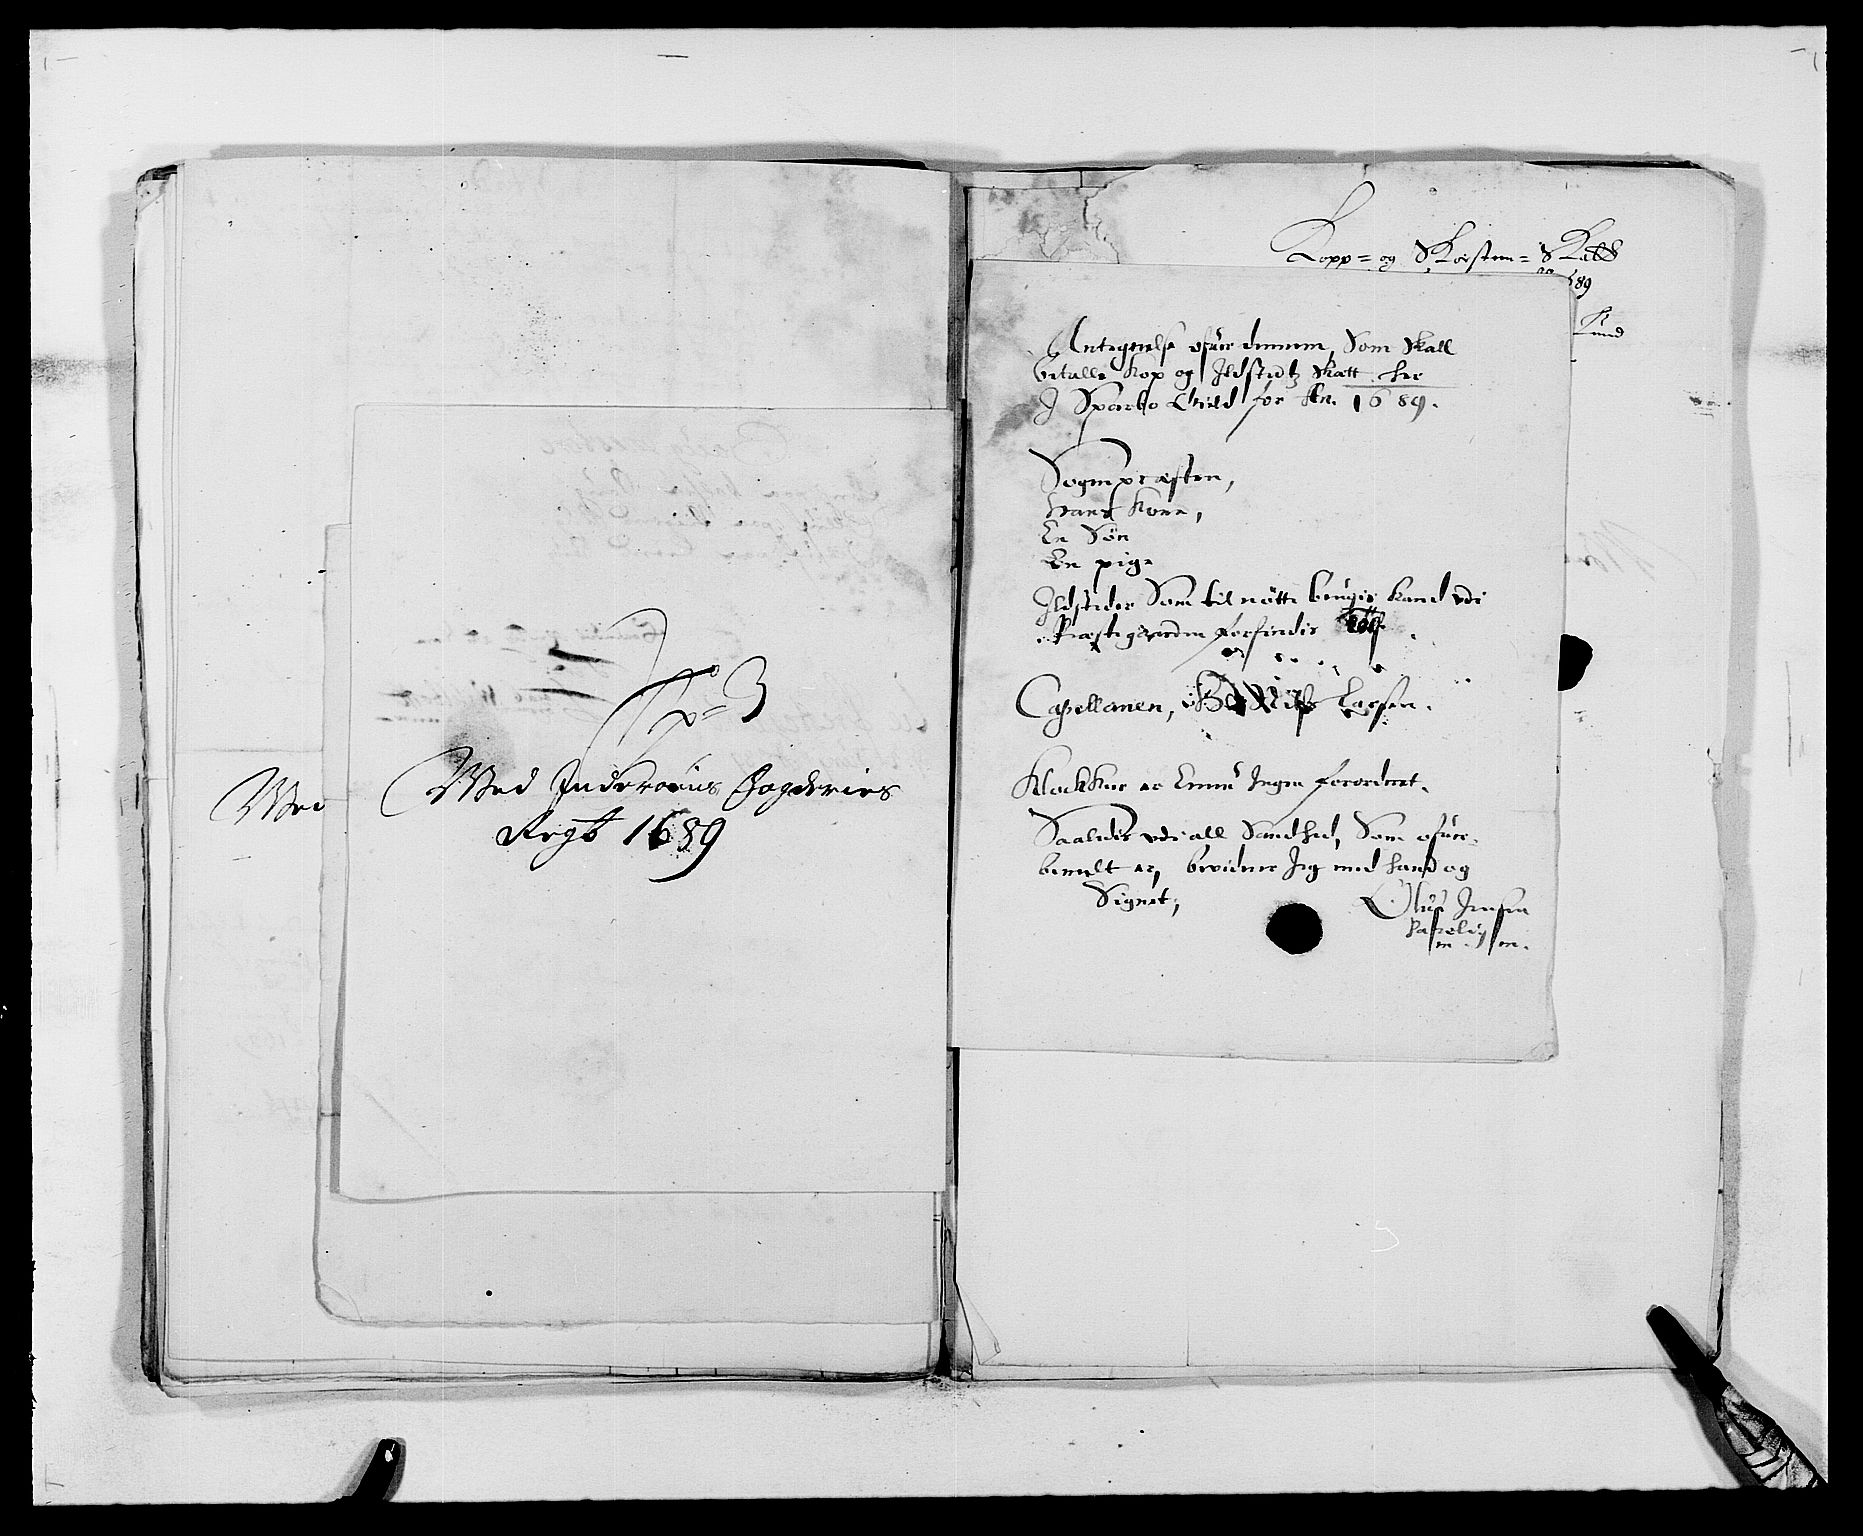 Med
No 3
Med Inderøens Fogderies
Regsb 1689
Kopp= og Skorsten= Skatt
89
Antegnelse ofuer dennem, Som Skall
betalle Kop og Ildstedtz Skatt her
I Sparbo Gield for An. 1689.
Sognepræsten,
Hans Kone,
En Søn
En pige
Ildsteder Som til nøtte brugis kand udi
Præstegaarden forfindis
Capellanen, Nils Larsen.
Klockker er Ingen forordnet.
Saaledis udi all Sandhed, Som ofuer-
bemelt er, bevidner Jeg med haand og
Signet,
Oluf Jensen